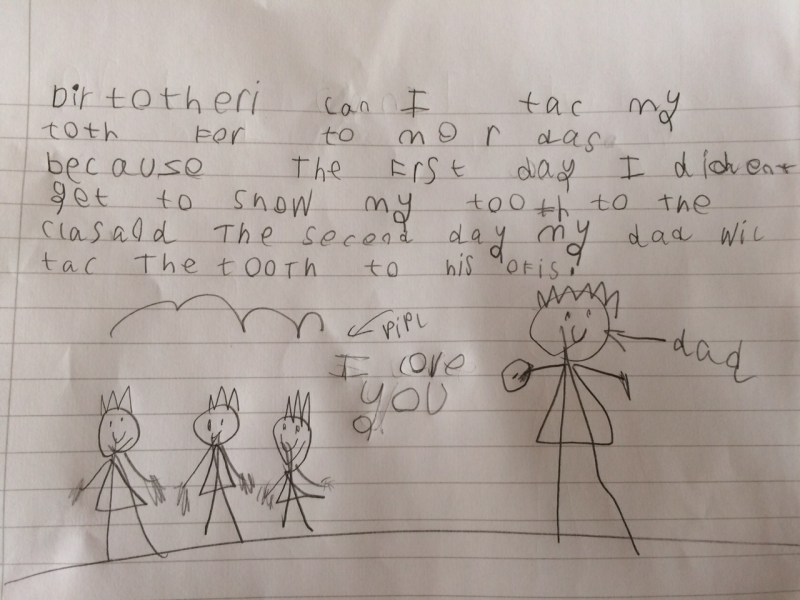 Dir totheri can I tac my
toth For to mor das
because The FrSt day I dident
get to show my tooth to the
clasald The second day my dad wil
tac The tOOTh to his ofis.
pipl
I love
you
dad